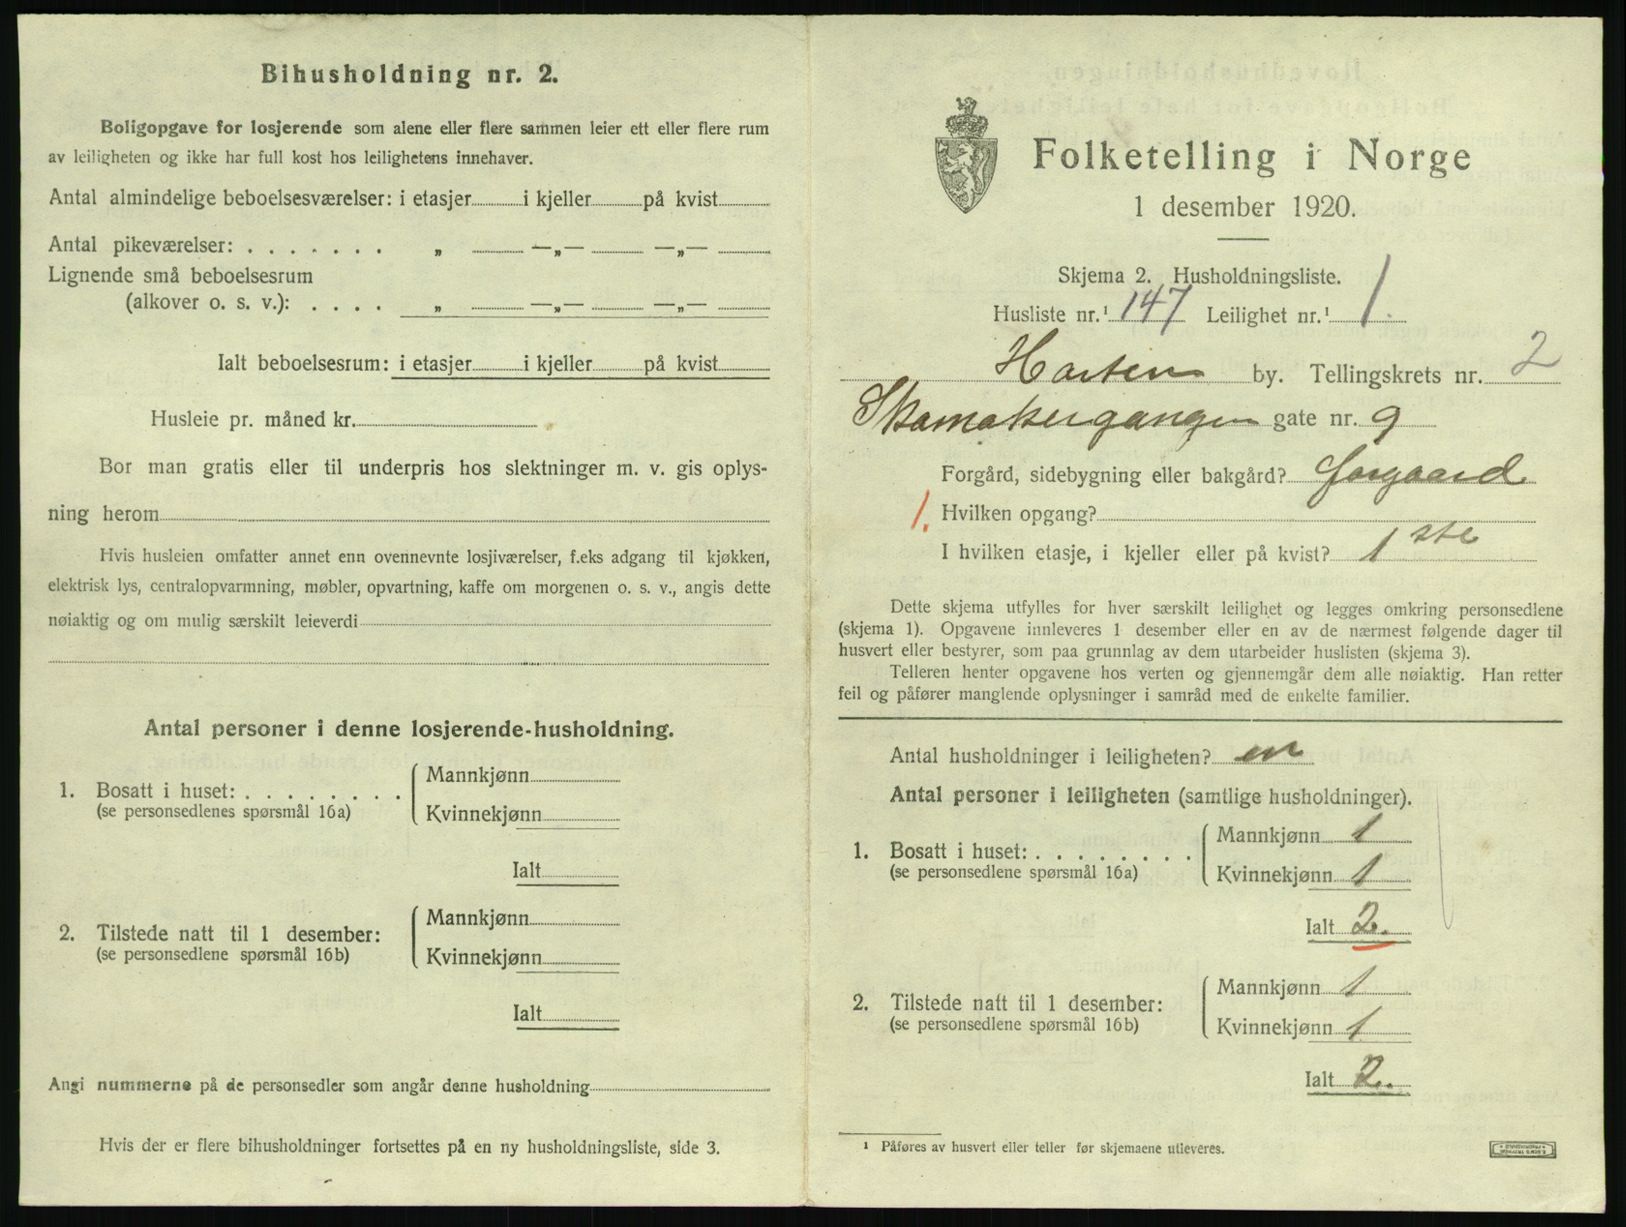 Bihusholdning nr. 2.
Boligopgave for losjerende som alene eller flere sammen leier ett eller flere rum
av leiligheten og ikke har full kost hos leilighetens innehaver.
Antal almindelige beboelsesværelser: i etasjer i kjeller på kvist
Antal pikeværelser: . . . . . . . „ —„— —„—
Lignende små beboelsesrum
(alkover o. s. v.): . . . . „ —„— —„—
Ialt beboelsesrum: i etasjer i kjeller på kvist
Husleie pr. måned kr.
Bor man gratis eller til underpris hos slektninger m. v. gis oplys-
ning herom
Hvis husleien omfatter annet enn ovennevnte losjiværelser, f.eks adgang til kjøkken,
elektrisk lys, centralopvarmning, møbler, opvartning, kaffe om morgenen o. s. v., angis dette
nøiaktig og om mulig særskilt leieverdi
Antal personer i denne losjerende-husholdning.
1. Bosatt i huset: . . . . . . . .
(se personsedlenes spørsmål 16a)
Mannkjønn
Kvinnekjønn
Ialt
2. Tilstede natt til 1 desember:
(se personsedlene spørsmål 16b)
Mannkjønn
Kvinnekjønn
Ialt
Angi nummerne på de personsedler som angår denne husholdning
Hvis der er flere bihusholdninger fortsettes på en ny husholdningsliste, side 3.
Folketelling i Norge
1 desember 1920.
Skjema 2. Husholdningsliste.
Husliste nr.¹ 147 Leilighet nr.¹ 1.
Horten by. Tellingskrets nr. 2
Skomakergangen gate nr. 9
Forgård, sidebygning eller bakgård? Forgaard
1. Hvilken opgang?
I hvilken etasje, i kjeller eller på kvist? 1 ste
Dette skjema utfylles for hver særskilt leilighet og legges omkring personsedlene
(skjema 1). Opgavene innleveres 1 desember eller en av de nærmest følgende dager til
husvert eller bestyrer, som paa grunnlag av dem utarbeider huslisten (skjema 3).
Telleren henter opgavene hos verten og gjennemgår dem alle nøiaktig. Han retter
feil og påfører manglende oplysninger i samråd med de enkelte familier.
Antal husholdninger i leiligheten? en
Antal personer i leiligheten (samtlige husholdninger).
1. Bosatt i huset: . . . . . . . .
(se personsedlene spørsmål 16a)
Mannkjønn 1
Kvinnekjønn 1
Ialt 2.
2. Tilstede natt til 1 desember:
(se personsedlene spørsmål 16b)
Mannkjønn 1
Kvinnekjønn 1.
Ialt 2.
¹ Påføres av husvert eller teller før skjemaene utleveres.